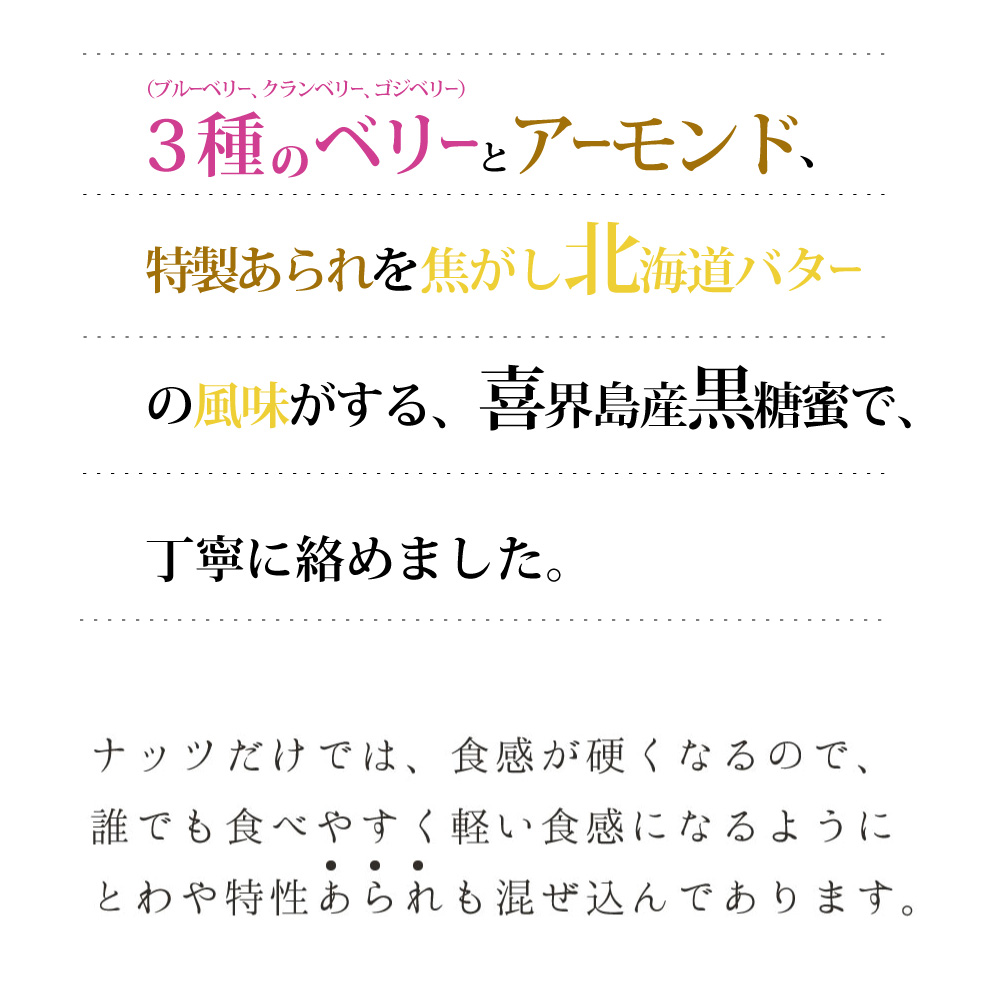 （ブルーベリー、クランベリー、ゴジベリー）
３種のベリーとアーモンド、
特製あられを焦がし北海道バター
の風味がする、喜界島産黒糖蜜で、
丁寧に絡めました。
ナッツだけでは、食感が硬くなるので、
誰でも食べやすく軽い食感になるように
とわや特性あられも混ぜ込んであります。